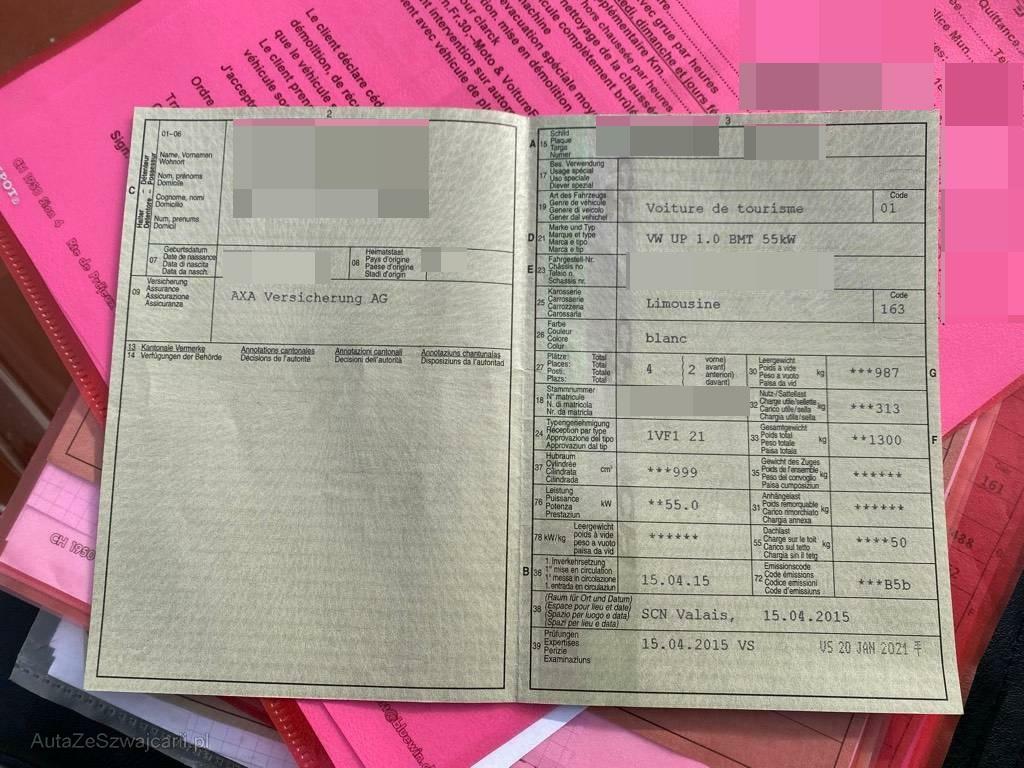 Le client déclare céd
démolition, de réc
que le véhicule s
Le client pren
véhicule so
J'accep
Ordre
Tra
Sign
CH 1950 Sion 4
Rte de Préjeu
CH 1950
@bluewin.c
Quittance
161
2
C
Halter – Détenteur
Detentore – Possessur
01–06
Name, Vornamen
Wohnort
Nom, prénoms
Domicile
Cognome, nomi
Domicilio
Num, prenums
Domicil
07
Geburtsdatum
Date de naissance
Data di nascita
Data da nasch.
08
Heimatstaat
Pays d'origine
Paese d'origine
Stadi d'origin
09
Versicherung
Assurance
Assicurazione
Assicuranza
AXA Versicherung AG
13 Kantonale Vermerke
14 Verfügungen der Behörde
Annotations cantonales
Décisions de l'autorité
Annotazioni cantonali
Decisioni dell'autorità
Annotaziuns chantunalas
Disposiziuns da l'autoritad
3
A 15
Schild
Plaque
Targa
Numer
17
Bes. Verwendung
Usage spécial
Uso speciale
Diever spezial
19
Art des Fahrzeugs
Genre de véhicule
Genere di veicolo
Gener dal vehichel
Voiture de tourisme
Code
01
D 21
Marke und Typ
Marque et type
Marca e tipo
Marca e tip
VW UP 1.0 BMT 55kW
E 23
Fahrgestell-Nr.
Châssis no
Telaio n.
Schassis nr.
25
Karosserie
Carrosserie
Carrozzeria
Carossaria
Limousine
Code
163
26
Farbe
Couleur
Colore
Colur
blanc
27
Plätze: Total
Places: Total
Posti: Totale
Plazs: Total
4
2
vorne)
avant)
anteriori)
davant)
30
Leergewicht
Poids à vide
Peso a vuoto
Paisa da vid
kg
***987
G
18
Stammnummer
N° matricule
N. di matricola
Nr. da matricla
32
Nutz-/Sattellast
Charge utile/sellette
Carico utile/sella
Chargia utila/sella
kg
***313
24
Typengenehmigung
Réception par type
Approvazione del tipo
Approvaziun dal tip
1VF1 21
33
Gesamtgewicht
Poids total
Peso totale
Paisa totala
kg
**1300
F
37
Hubraum
Cylindrée
Cilindrata
Cilindrada
cm³
***999
35
Gewicht des Zuges
Poids de l'ensemble
Peso del convoglio
Paisa cumposiziun
kg
******
76
Leistung
Puissance
Potenza
Prestaziun
kW
**55.0
31
Anhängelast
Poids remorquable
Carico rimorchiato
Chargia annexa
kg
******
78 kW/kg
Leergewicht
poids à vide
peso a vuoto
paisa da vid
******
55
Dachlast
Charge sur le toit
Carico sul tetto
Chargia sin il tetg
kg
****50
B 36
1. Inverkehrsetzung
1re mise en circulation
1a messa in circolazione
1. entrada en circulaziun
15.04.15
72
Emissionscode
Code émissions
Codice emissioni
Code d'emissiuns
***B5b
38
(Raum für Ort und Datum)
(Espace pour lieu et date)
(Spazio per luogo e data)
(Spazi per lieu e data)
SCN Valais, 15.04.2015
39
Prüfungen
Expertises
Perizie
Examinaziuns
15.04.2015 VS
VS 20 JAN 2021
AutaZeSzwajcarii.pl